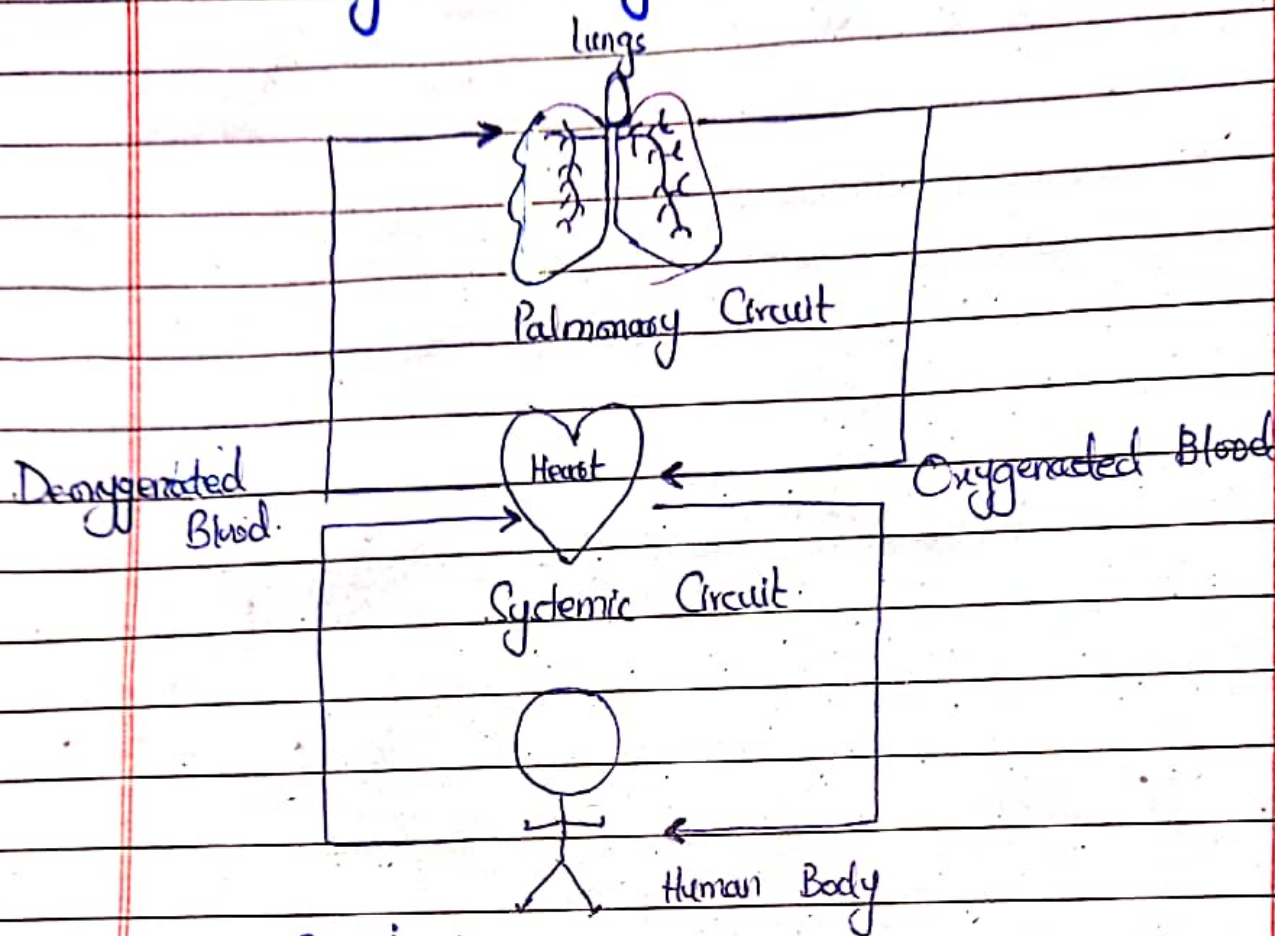 lungs
Palmonary Circuit
Heart
Deoxygenated
Blood.
Oxygenated Blood
Systemic Circuit.
Human Body